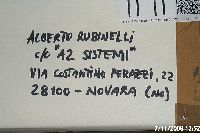 ALBERTO RUBINELLI
c/o "A2 SISTEMI"
VIA COSTANTINO PERAZZI, 22
28100 - NOVARA (NO)
7/11/2009 12:52